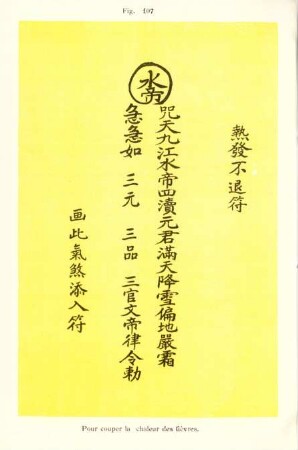 Fig. 107
熱發不退符
水帝
咒天九江水帝四瀆元君滿天降雪偏地嚴霜
急急如 三元 三品 三官文帝律令勅
画此氣煞添入符
Pour couper la chaleur des fièvres.